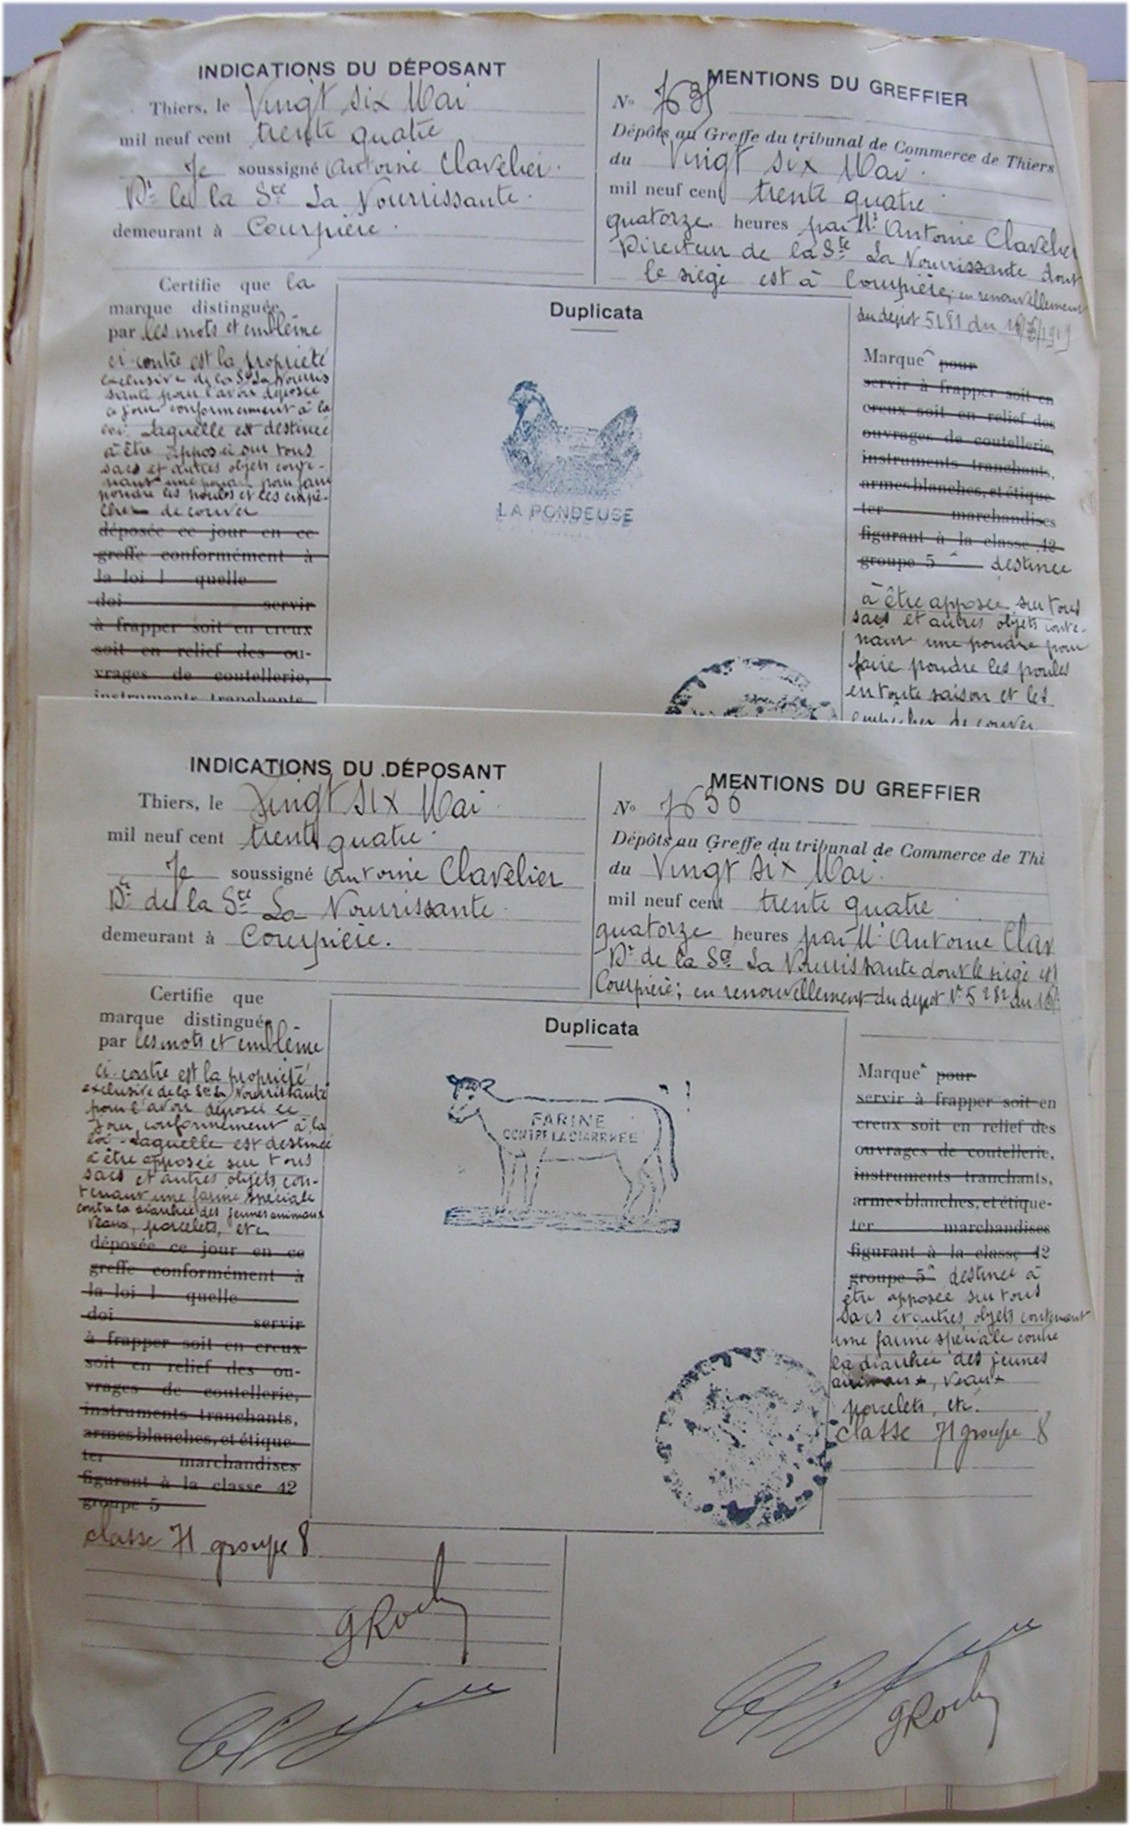 INDICATIONS DU DÉPOSANT
Thiers, le Vingt six Mai
mil neuf cent trente quatre
Je soussigné Antoine Clavelier
Dr de la Sté La Nourrissante
demeurant à Courpière.
MENTIONS DU GREFFIER
No 7635
Dépôts au Greffe du tribunal de Commerce de Thiers
du Vingt six Mai.
mil neuf cent trente quatre
quatorze heures par Mr Antoine Clavelier
Directeur de la Sté La Nourrissante dont
le siège est à Courpière; en renouvellement
du dépot 5281 du
Certifie que la
marque distinguée
par les mots et emblème
ci-contre est la propriété
exclusive de la Sté La Nourris
sante pour l'avoir déposée
ce jour conformément à la
loi. Laquelle est destinée
à être apposée sur tous
sacs et autres objets conte-
nant une poudre pour faire
pondre les poules et les empê-
cher de couver
déposée ce jour en ce
greffe conformément à
la loi l quelle
doi servir
à frapper soit en creux
soit en relief des ou-
vrages de coutellerie,
instruments tranchants
Duplicata
LA PONDEUSE
Marque pour
servir à frapper soit en
creux soit en relief des
ouvrages de coutellerie,
instruments tranchants,
armes blanches, et étique-
ter marchandises
figurant à la classe 12
groupe 5 destinée
à être apposée sur tous
sacs et autres objets conte-
nant une poudre pour
faire pondre les poules
en toute saison et les
empêcher de couver
INDICATIONS DU DÉPOSANT
Thiers, le Vingt six Mai
mil neuf cent trente quatre
Je soussigné Antoine Clavelier
Dr de la Sté La Nourrissante
demeurant à Courpière.
MENTIONS DU GREFFIER
No 7636
Dépôts au Greffe du tribunal de Commerce de Thi
du Vingt six Mai.
mil neuf cent trente quatre
quatorze heures par Mr Antoine Clav
Dr de la Sté La Nourrissante dont le siège est
Courpière; en renouvellement du dépot No 5282 du
Certifie que
marque distinguée
par les mots et emblème
ci-contre est la propriété
exclusive de la Sté La Nourrissante
pour l'avoir déposée ce
jour, conformément à la
loi. Laquelle est destinée
à être apposée sur tous
sacs et autres objets con-
tenant une farine spéciale
contre la diarrhée des jeunes animaux
veaux, porcelets, etc
déposée ce jour en ce
greffe conformément à
la loi l quelle
doi servir
à frapper soit en creux
soit en relief des ou-
vrages de coutellerie,
instruments tranchants,
armes blanches, et étique-
ter marchandises
figurant à la classe 12
groupe 5
classe 71 groupe 8
Duplicata
FARINE
CONTRE LA DIARRHEE
Marque pour
servir à frapper soit en
creux soit en relief des
ouvrages de coutellerie,
instruments tranchants,
armes blanches, et étique-
ter marchandises
figurant à la classe 12
groupe 5 destinée à
être apposée sur tous
sacs et autres objets contenant
une farine spéciale contre
la diarrhée des jeunes
animaux, veaux
porcelets, etc.
classe 71 groupe 8
GRoch
GRoch